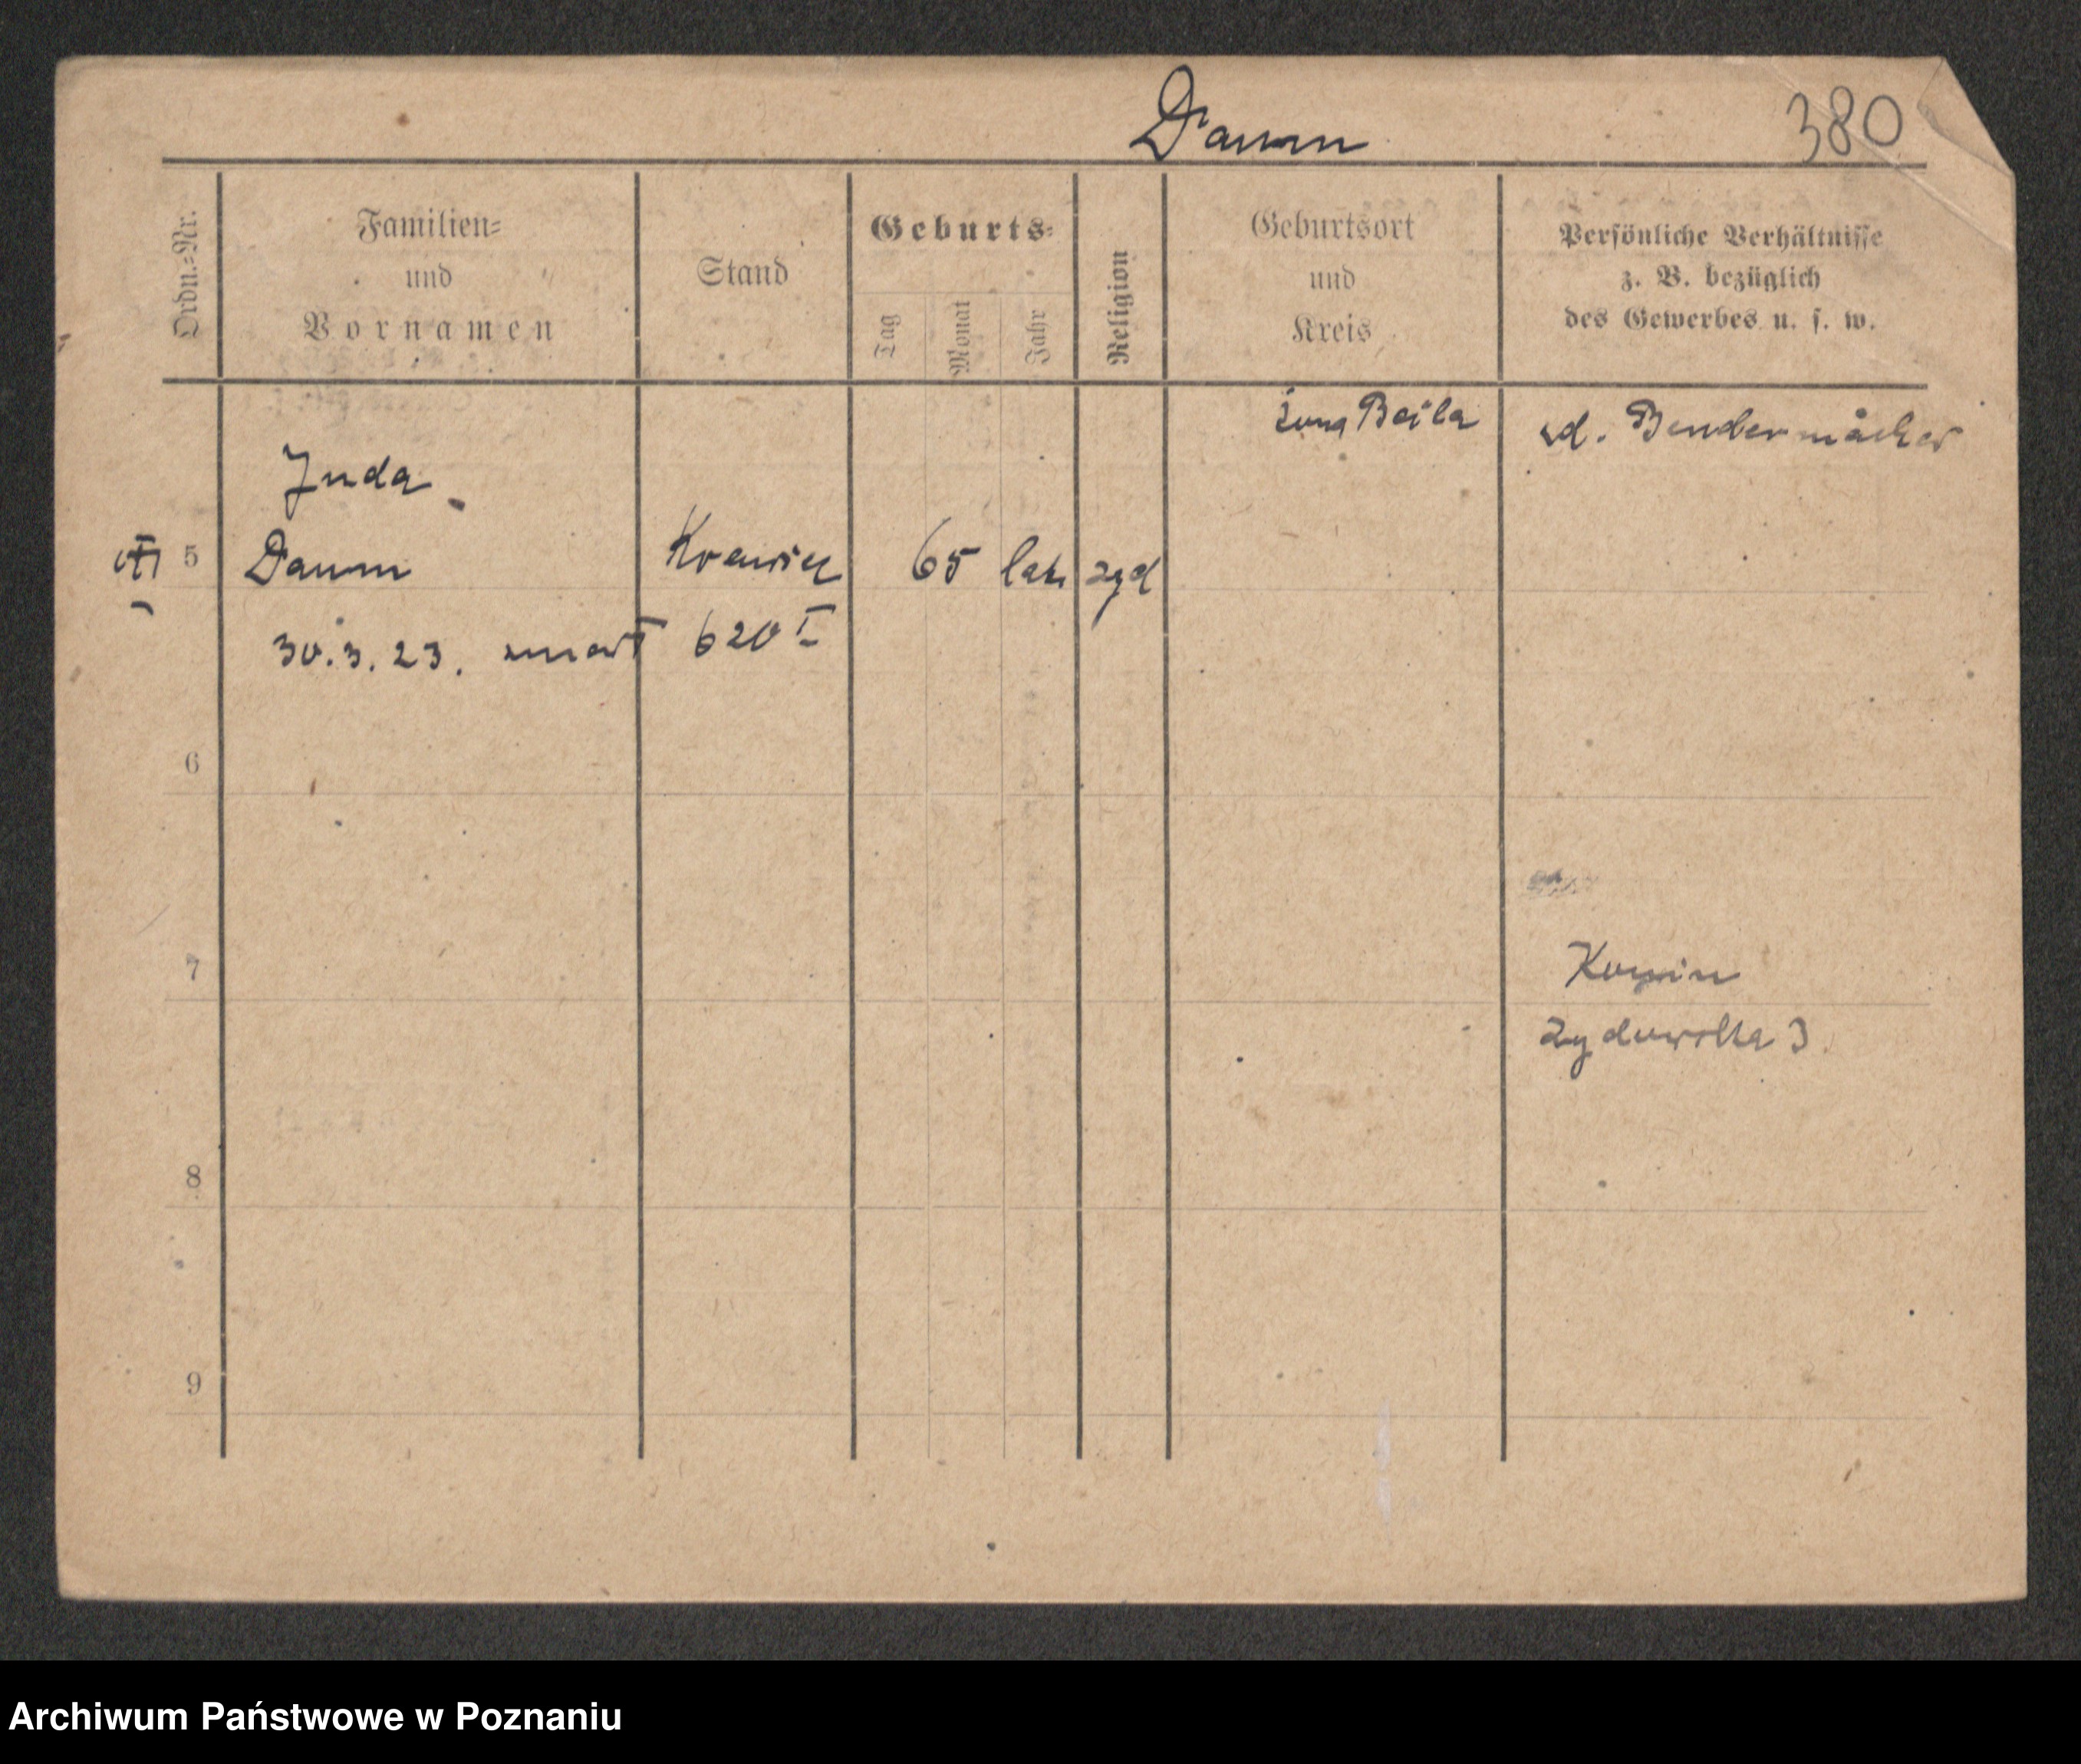 Daum
380
Ordn.=Nr.
Familien=
und
Vornamen
Stand
Geburts=
Tag
Monat
Jahr
Religion
Geburtsort
und
Kreis
Persönliche Verhältnisse
z. B. bezüglich
des Gewerbes u. s. w.
żona Bajla
zd. Bendermacher
Juda
5 Daum Krawiec 65 lat żyd
30.3.23. zmarł 620 I
6
7
Konin
Żydowska 3
8
9
Archiwum Państwowe w Poznaniu